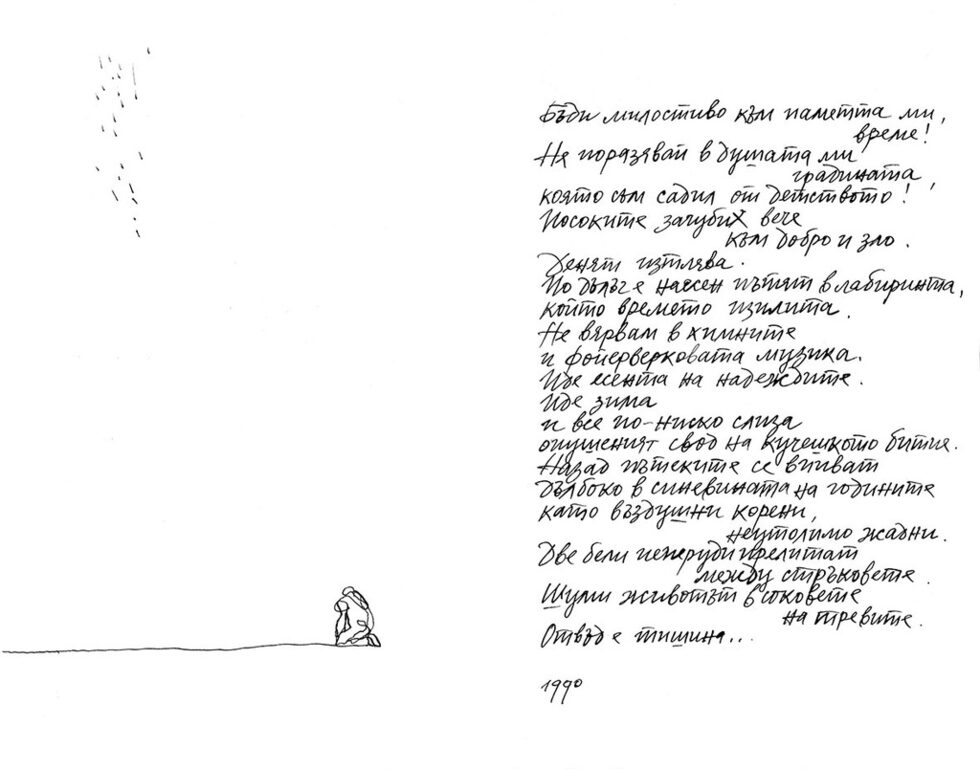 Бъди милостиво към паметта ми,
време!
Не поразявай в душата ми
градината,
която съм садил от детството!
Посоките загубих вече
към добро и зло.
Денят изтлява.
По дълъг е насен пътят в лабиринта,
който времето изплита.
Не вярвам в химните
и фойерверковата музика.
Иде есента на надеждите.
Иде зима
и все по-ниско слиза
опушеният свод на кучешкото битие.
Назад пътеките се впиват
дълбоко в синевината на годините
като въздушни корени,
неутолимо жадни.
Две бели пеперуди прелитат
между стръковете.
Шуми животът в соковете
на тревите.
Отвъд е тишина...
1990